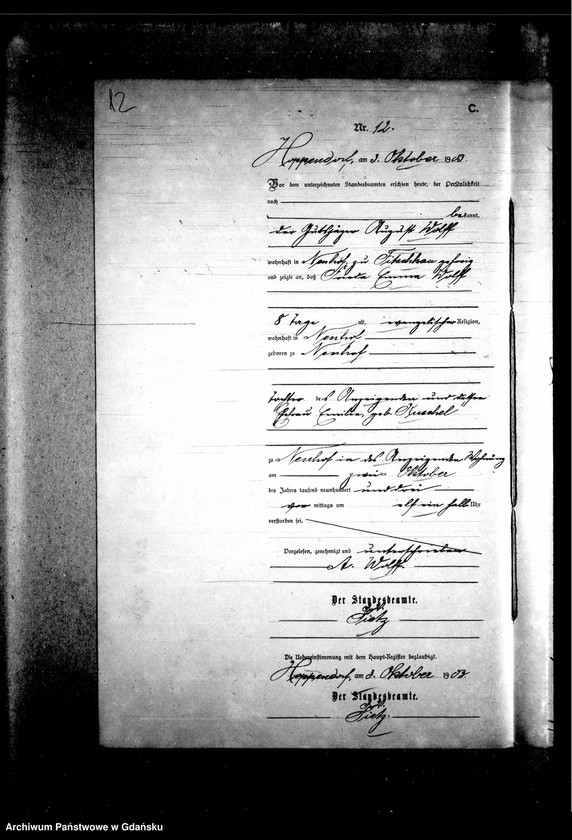 12
C.
Nr. 12.
Hoppendorf, am 3. Oktober 1903.
Vor dem unterzeichneten Standesbeamten erschien heute, der Persönlichkeit
nach
bekannt,
der Gutsjäger August Wolff
wohnhaft in Neuhof, zu Fitschkau gehörig
und zeigte an, daß Frieda Emma Wolff
8 Tage alt, evangelischer Religion,
wohnhaft in Neuhof
geboren zu Neuhof
Tochter des Anzeigenden und dessen
Ehefrau Emilie, geb. Kuschel
zu Neuhof in des Anzeigenden Wohnung
am zweiten Oktober
des Jahres tausend neunhundert und drei
vor mittags um elf ein halb Uhr
verstorben sei.
Vorgelesen, genehmigt und unterschrieben
A. Wolff.
Der Standesbeamte.
Tietz
Die Uebereinstimmung mit dem Haupt-Register beglaubigt.
Hoppendorf, am 3. Oktober 1903.
Der Standesbeamte.
Tietz.
Archiwum Państwowe w Gdańsku